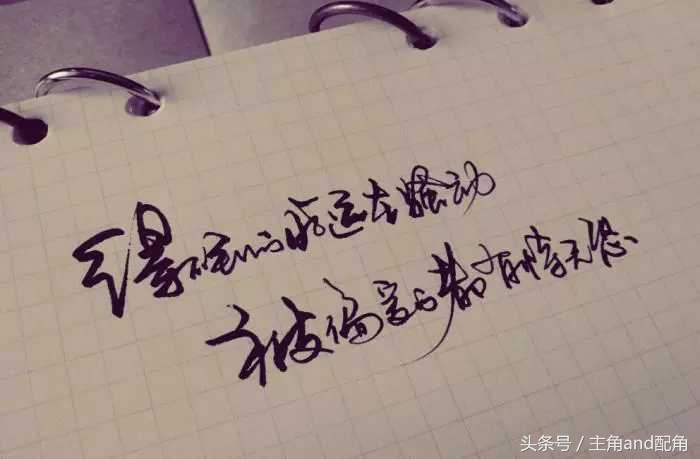 得不到的永远在骚动
被偏爱的都有恃无恐
头条号 / 主角and配角